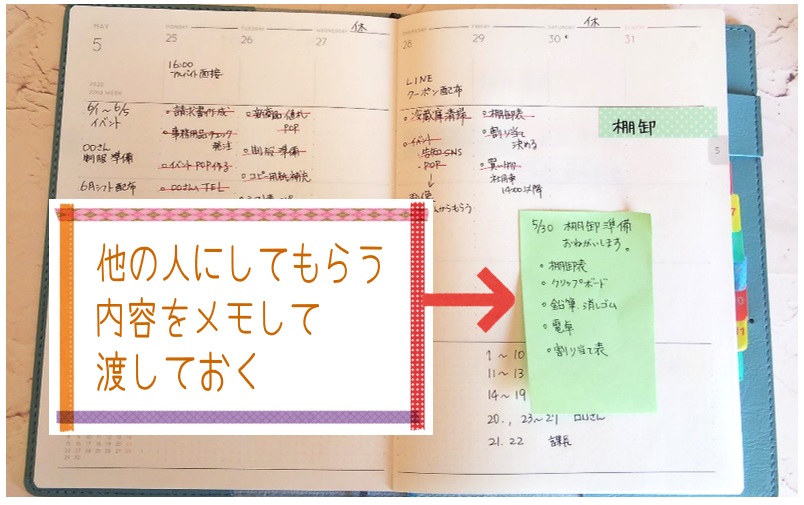 MAY
5
MONDAY
25
TUESDAY
26
WEDNESDAY
27
休
28
FRIDAY
29
SATURDAY
30
休
SUNDAY
31
16:00
アルバイト面接
LINE
クーポン配布
6/1～6/5
イベント
〇〇さん
制服準備
6月シフト配布
請求書作成
事務用品チェック
発注
イベントPOP作る
〇〇さんTEL
値札
POP
制服準備
コピー用紙補充
冷蔵庫清掃
イベント
告知SNS
POP
↓
からもらう
棚卸表
割り当て
決める
買い物
社用車
14:00以降
棚卸
5
他の人にしてもらう
内容をメモして
渡しておく
5/30 棚卸準備
おねがいします。
棚卸表
クリップボード
鉛筆 消しゴム
電卓
割り当て表
1～10
11～13
14～19
20., 23～29 〇〇さん
21.22 課長